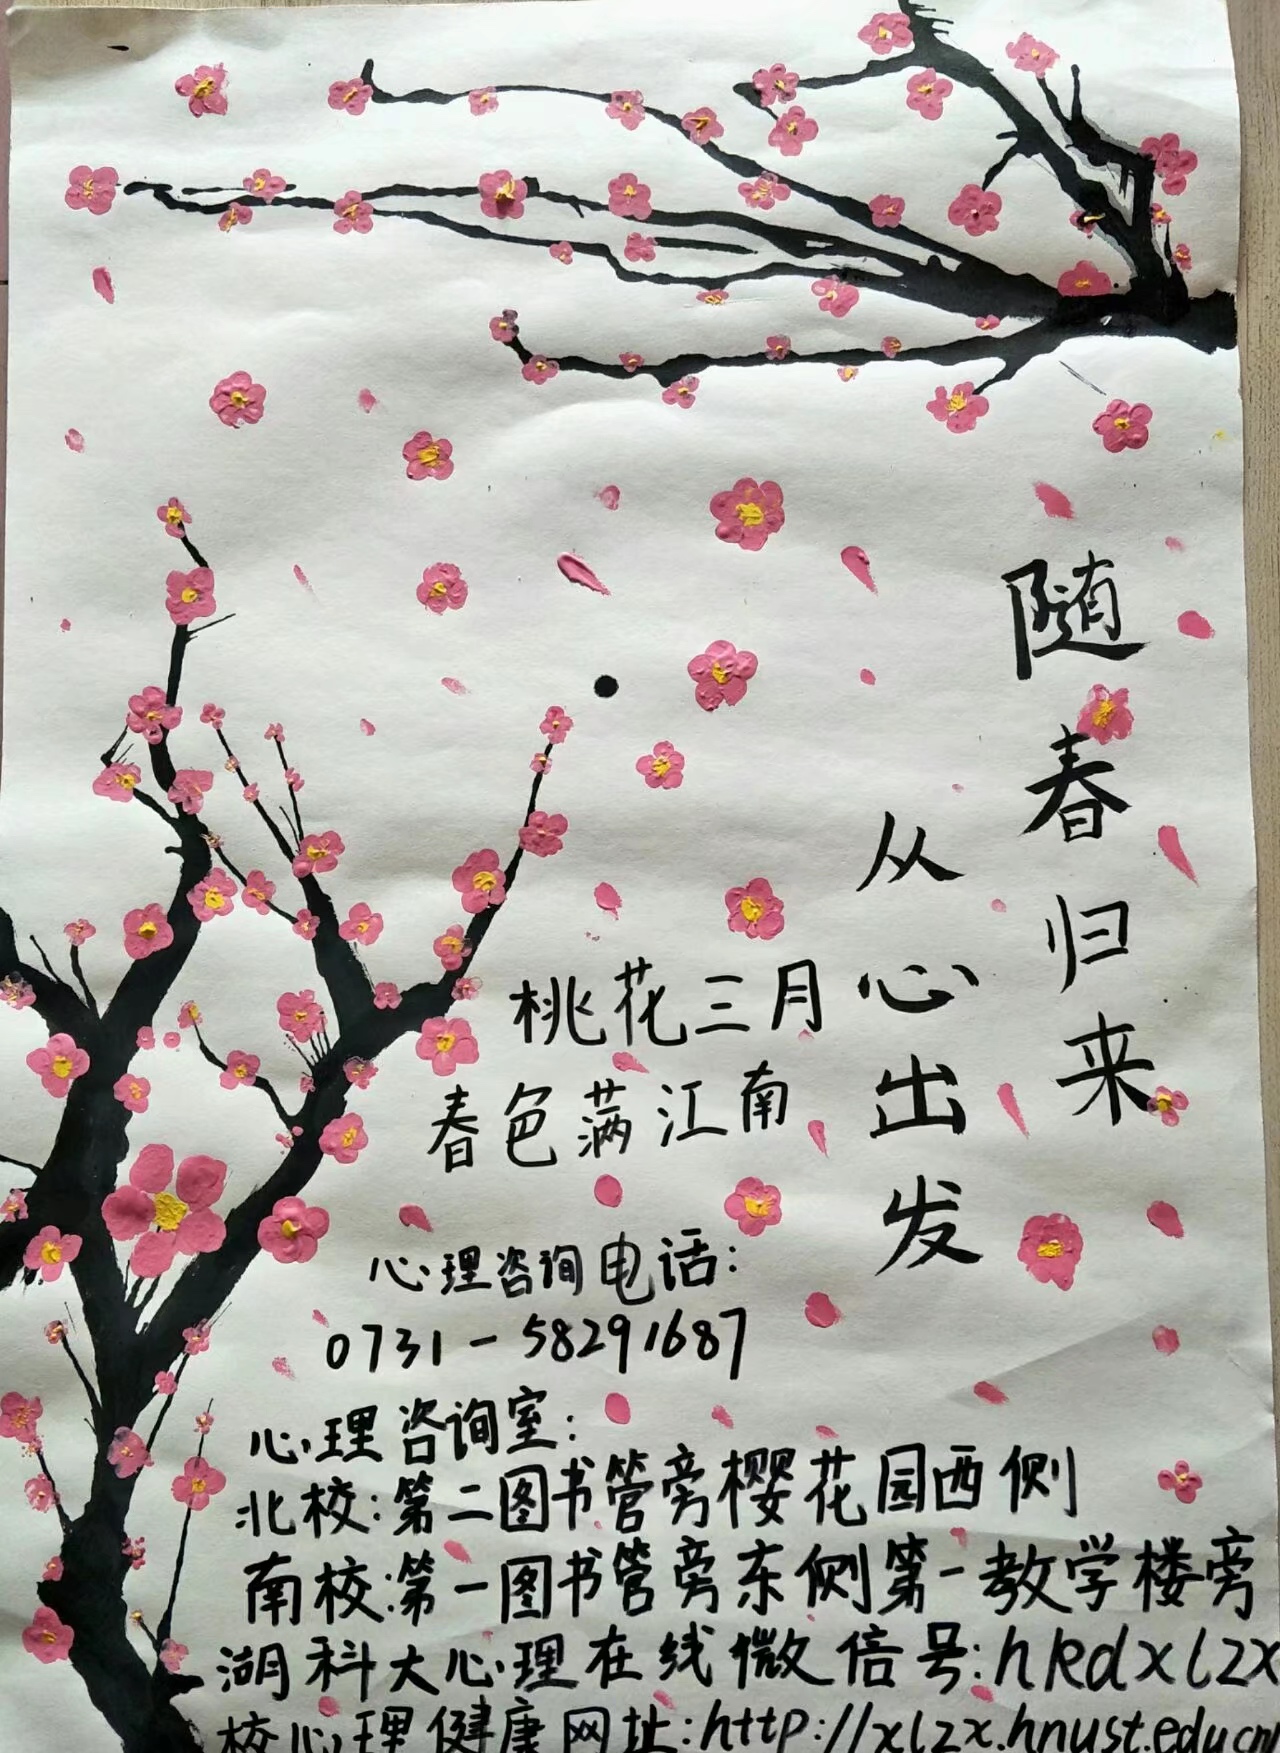 随春归来
从心出发
桃花三月
春色满江南
心理咨询电话:
0731-58291687
心理咨询室:
北校:第二图书管旁樱花园西侧
南校:第一图书管旁东侧第一教学楼旁
湖科大心理在线微信号:hkdxlzx
校心理健康网址:http://xlzx.hnust.edu.cn